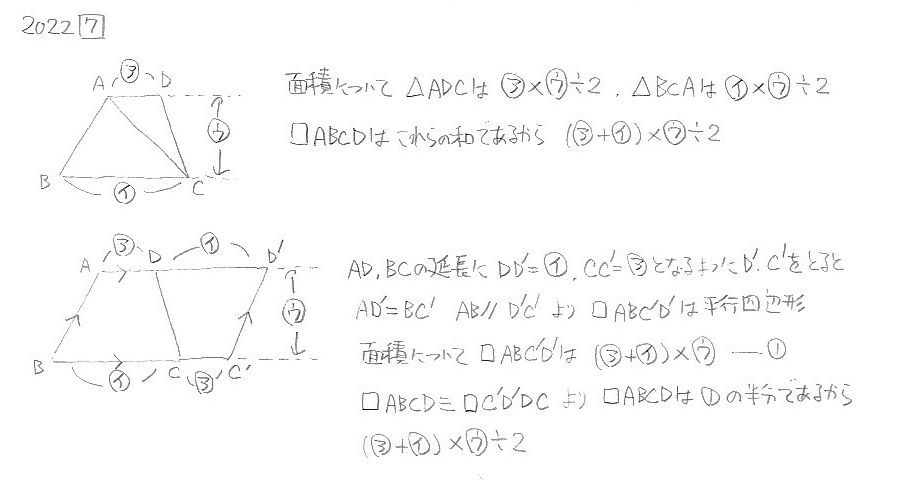 2022 7
ヨ
A D
ウ
B イ C
面積について △ADCは ヨ×ウ÷2 , △BCAは イ×ウ÷2
□ABCDは これらの和であるから (ヨ+イ)×ウ÷2
ヨ イ
A D D'
ウ
B イ C ヨ C'
AD,BCの延長に DD'=イ, CC'=ヨとなるようにD',C'をとると
AD'=BC' AB//D'C' より □ABC'D'は平行四辺形
面積について □ABC'D'は (ヨ+イ)×ウ ―①
□ABCD≡□C'D'DC より □ABCDは①の半分であるから
(ヨ+イ)×ウ÷2